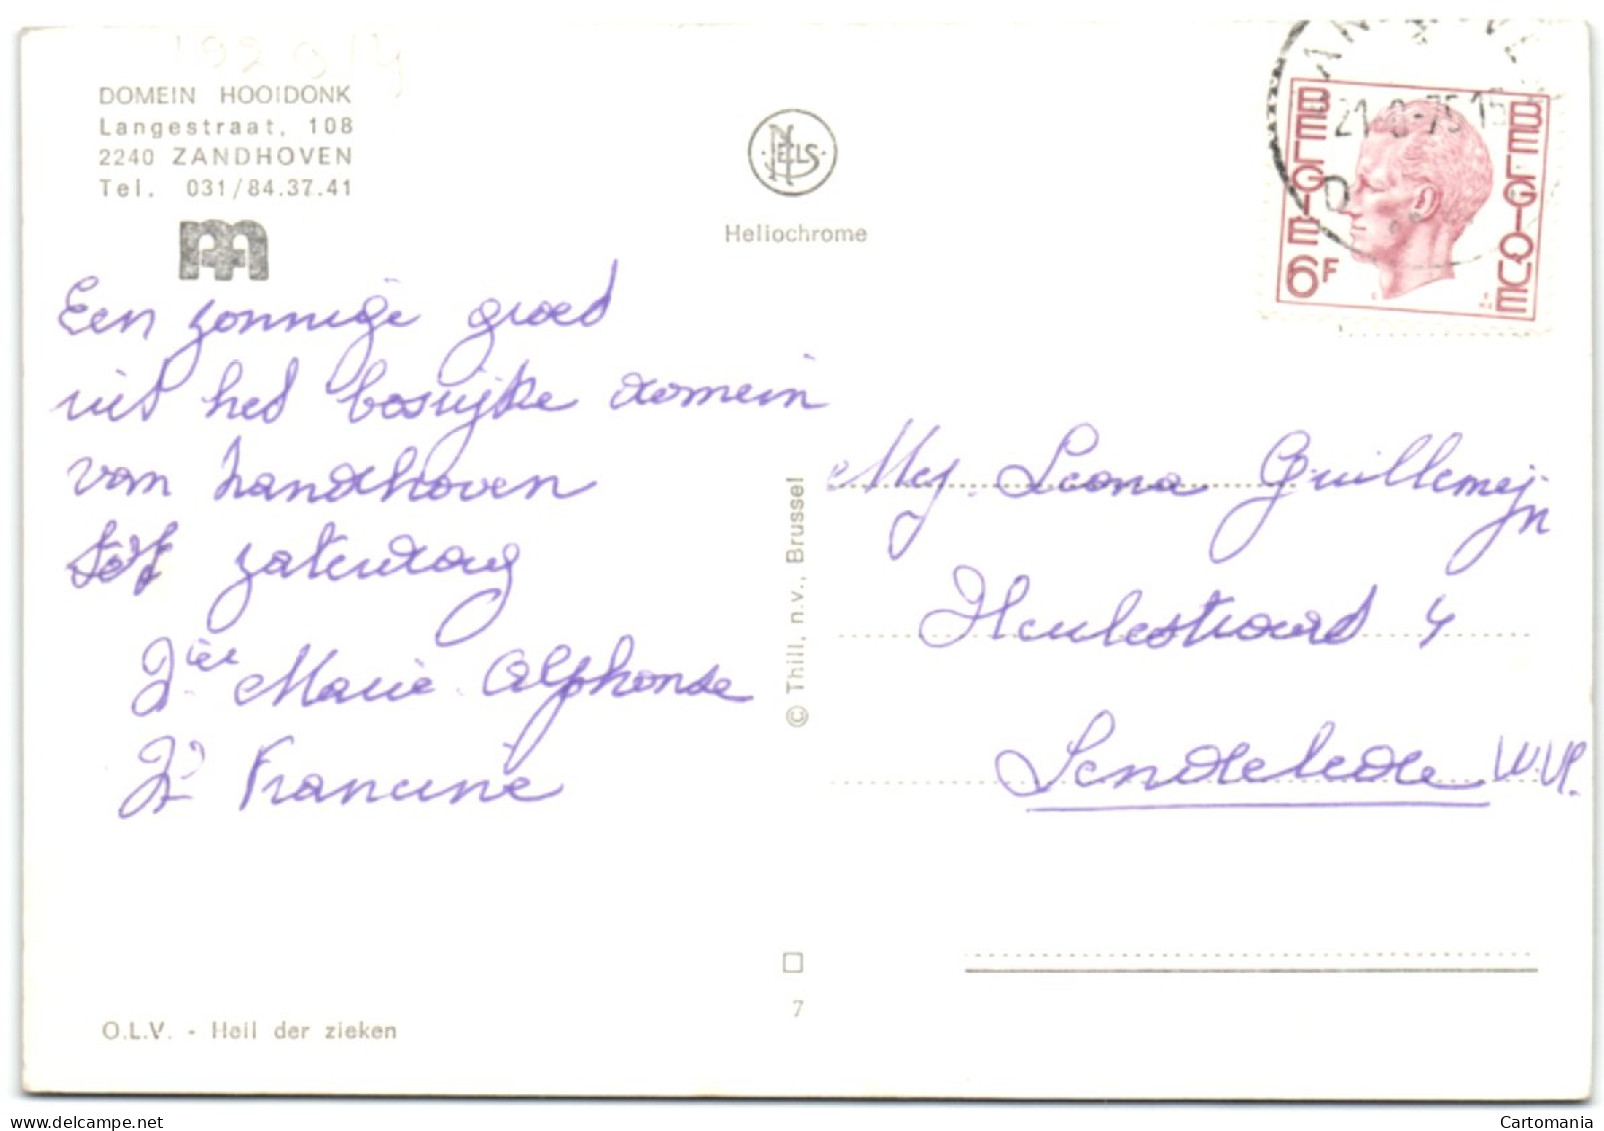 DOMEIN HOOIDONK
Langestraat, 108
2240 ZANDHOVEN
Tel. 031/84.37.41
NELS
Heliochrome
BELGIE
BELGIQUE
6F
21-8-75 15
Een zonnige groet
uit het bosrijke domein
van Zandhoven
tot zaterdag
Marie Alphonse
Francine
© Thill, n.v., Brussel
Mej. Leona Guillemijn
Heulestraat 4
Lendelede W.Vl.
7
O.L.V. - Heil der zieken
Cartomania